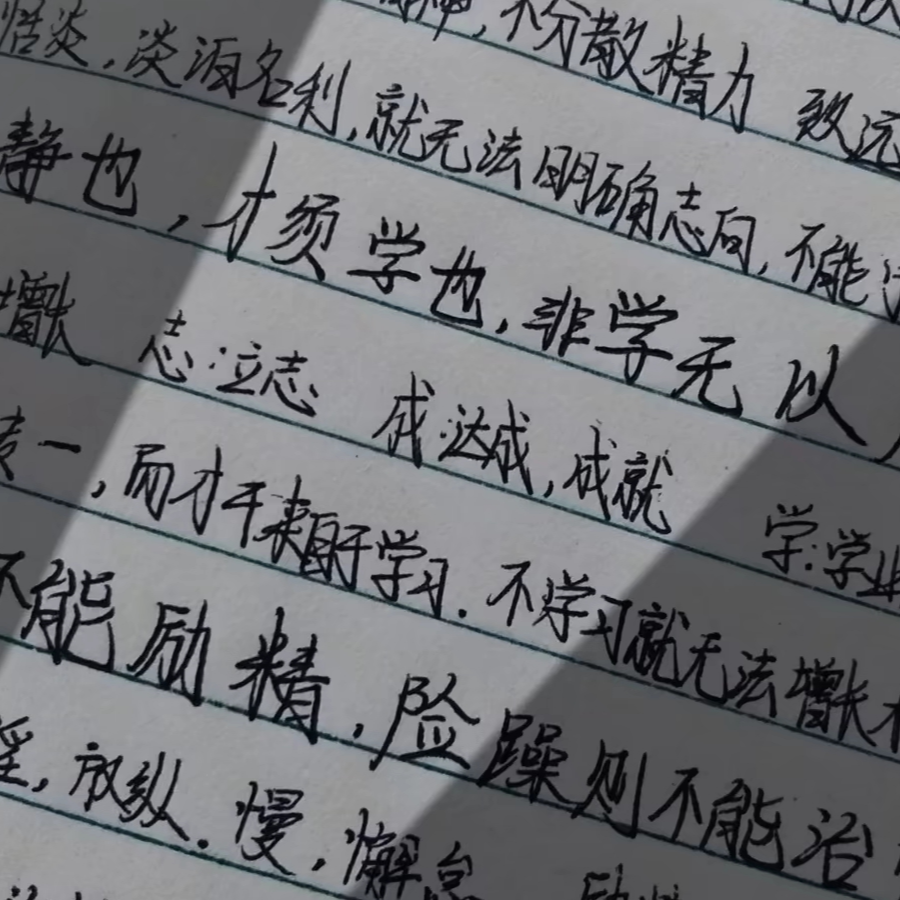 神,不分散精力 致远
恬淡,淡泊名利,就无法明确志向,不能
静也,才须学也,非学无以
增长 志:立志 成:达成,成就 学:学业
专一,而才干来自于学习.不学习就无法增长才
不能励精,险躁则不能治
淫,放纵.慢,懈怠 励